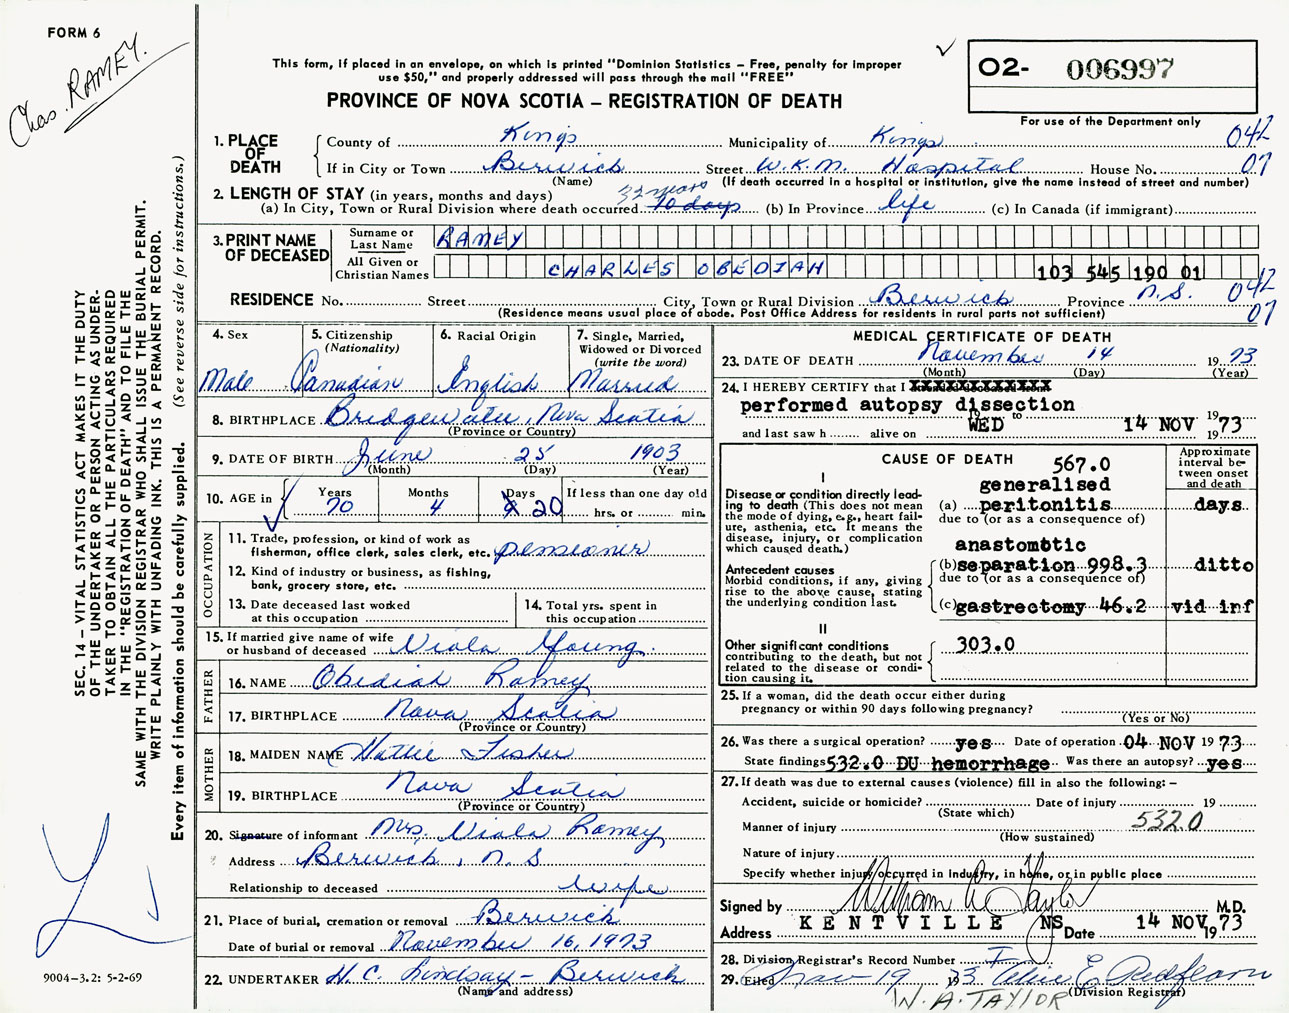 FORM 6
Chas. RAMEY.
This form, if placed in an envelope, on which is printed "Dominion Statistics – Free, penalty for improper
use $50," and properly addressed will pass through the mail "FREE"
PROVINCE OF NOVA SCOTIA – REGISTRATION OF DEATH
02- 006997
For use of the Department only
1. PLACE OF DEATH
County of Kings Municipality of Kings 042
If in City or Town Berwick Street W.K.M. Hospital House No. 07
(Name) (If death occurred in a hospital or institution, give the name instead of street and number)
2. LENGTH OF STAY (in years, months and days) 32 years
(a) In City, Town or Rural Division where death occurred 10 days (b) In Province life (c) In Canada (if immigrant)
3. PRINT NAME OF DECEASED
Surname or Last Name RAMEY
All Given or Christian Names CHARLES OBEDIAH 103 545 190 01
RESIDENCE No. Street City, Town or Rural Division Berwick Province N.S. 042
(Residence means usual place of abode. Post Office Address for residents in rural parts not sufficient) 07
SEC. 14 – VITAL STATISTICS ACT MAKES IT THE DUTY
OF THE UNDERTAKER OR PERSON ACTING AS UNDER-
TAKER TO OBTAIN ALL THE PARTICULARS REQUIRED
IN THE "REGISTRATION OF DEATH" AND TO FILE THE
SAME WITH THE DIVISION REGISTRAR WHO SHALL ISSUE THE BURIAL PERMIT.
WRITE PLAINLY WITH UNFADING INK. THIS IS A PERMANENT RECORD.
Every item of information should be carefully supplied. (See reverse side for instructions.)
4. Sex
Male
5. Citizenship
(Nationality)
Canadian
6. Racial Origin
English
7. Single, Married,
Widowed or Divorced
(write the word)
Married
8. BIRTHPLACE Bridgewater, Nova Scotia
(Province or Country)
9. DATE OF BIRTH June 25 1903
(Month) (Day) (Year)
10. AGE in
Years 70
Months 4
Days 20
If less than one day old
hrs. or min.
OCCUPATION
11. Trade, profession, or kind of work as
fisherman, office clerk, sales clerk, etc. pensioner
12. Kind of industry or business, as fishing,
bank, grocery store, etc.
13. Date deceased last worked
at this occupation
14. Total yrs. spent in
this occupation
15. If married give name of wife
or husband of deceased Viola Young.
FATHER
16. NAME Obidiah Ramey
17. BIRTHPLACE Nova Scotia
(Province or Country)
MOTHER
18. MAIDEN NAME Hattie Fisher
19. BIRTHPLACE Nova Scotia
(Province or Country)
20. Signature of informant Mrs. Viola Ramey
Address Berwick, N.S
Relationship to deceased wife
21. Place of burial, cremation or removal Berwick
Date of burial or removal November 16, 1973
22. UNDERTAKER H.C. Lindsay – Berwick
(Name and address)
9004–3.2: 5-2-69
MEDICAL CERTIFICATE OF DEATH
23. DATE OF DEATH November 14 1973
(Month) (Day) (Year)
24. I HEREBY CERTIFY that I XXXXXXXXXXXX
performed autopsy dissection
19 to 19
WED 14 NOV 73
and last saw h alive on 19
CAUSE OF DEATH 567.0
Approximate interval between onset and death
I
Disease or condition directly lead-
ing to death (This does not mean
the mode of dying, e.g., heart fail-
ure, asthenia, etc. It means the
disease, injury, or complication
which caused death.)
generalised
(a) peritonitis days
due to (or as a consequence of)
anastomotic
Antecedent causes
Morbid conditions, if any, giving
rise to the above cause, stating
the underlying condition last.
(b) separation 998.3 ditto
due to (or as a consequence of)
(c) gastrectomy 46.2 vid inf
II
Other significant conditions
contributing to the death, but not
related to the disease or condi-
tion causing it.
303.0
25. If a woman, did the death occur either during
pregnancy or within 90 days following pregnancy?
(Yes or No)
26. Was there a surgical operation? yes Date of operation 04 NOV 1973
State findings 532.0 DU hemorrhage Was there an autopsy? yes
27. If death was due to external causes (violence) fill in also the following:–
Accident, suicide or homicide? Date of injury 19
(State which)
Manner of injury 532.0
(How sustained)
Nature of injury
Specify whether injury occurred in Industry, in home, or in public place
Signed by William A Taylor M.D.
Address KENTVILLE NS Date 14 NOV 1973
28. Division Registrar's Record Number
29. Filed Nov 19 1973
(Division Registrar)
W. A. TAYLOR